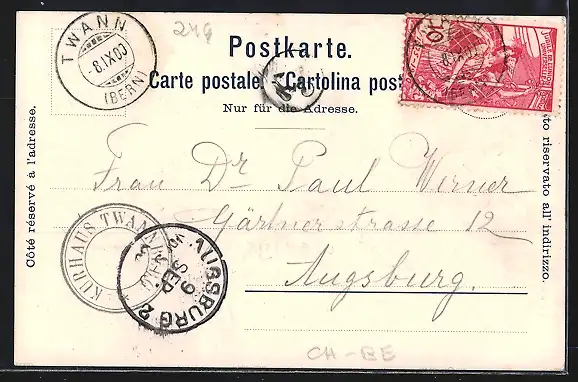 TWANN
-8.IX.00
(BERN)
Postkarte.
Carte postale. Cartolina post
Nur für die Adresse.
Côté réservé à l'adresse.
to riservato all' indirizzo.
10
Frau Dr Paul Werner
Gärtnerstrasse 12
Augsburg.
KURHAUS TWANNBERG
AUGSBURG 2
9 SEP
CH-BE